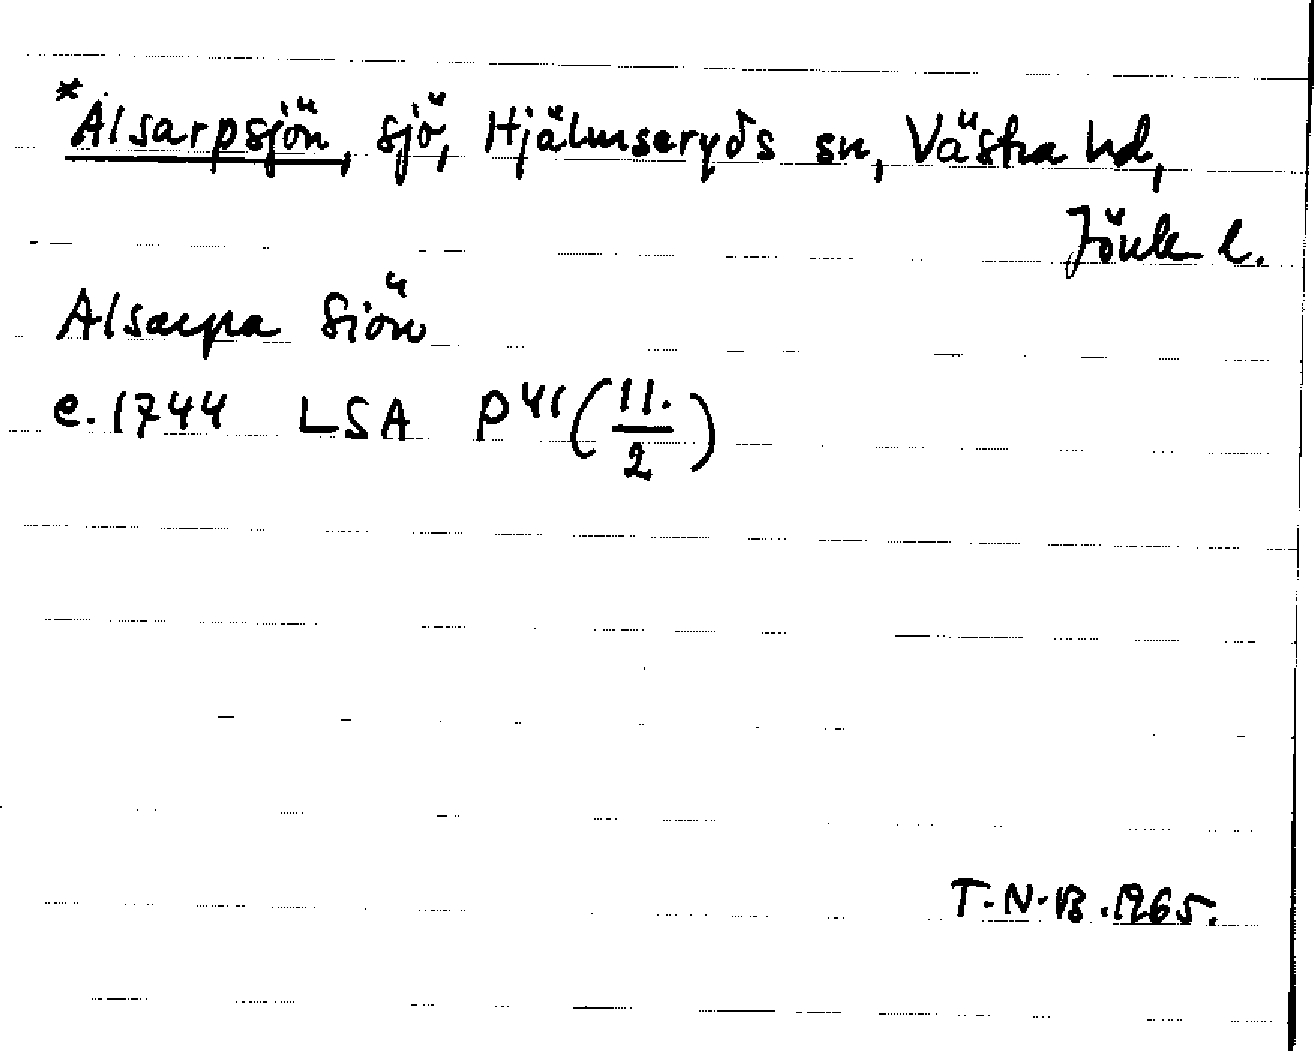 *Alsarpsjön, sjö, Hjälmseryds sn, Västra hd,
Jönk l.
Alsarpa Siön
e. 1744 LSA P41 (11./2)
T.N.B. 1965.